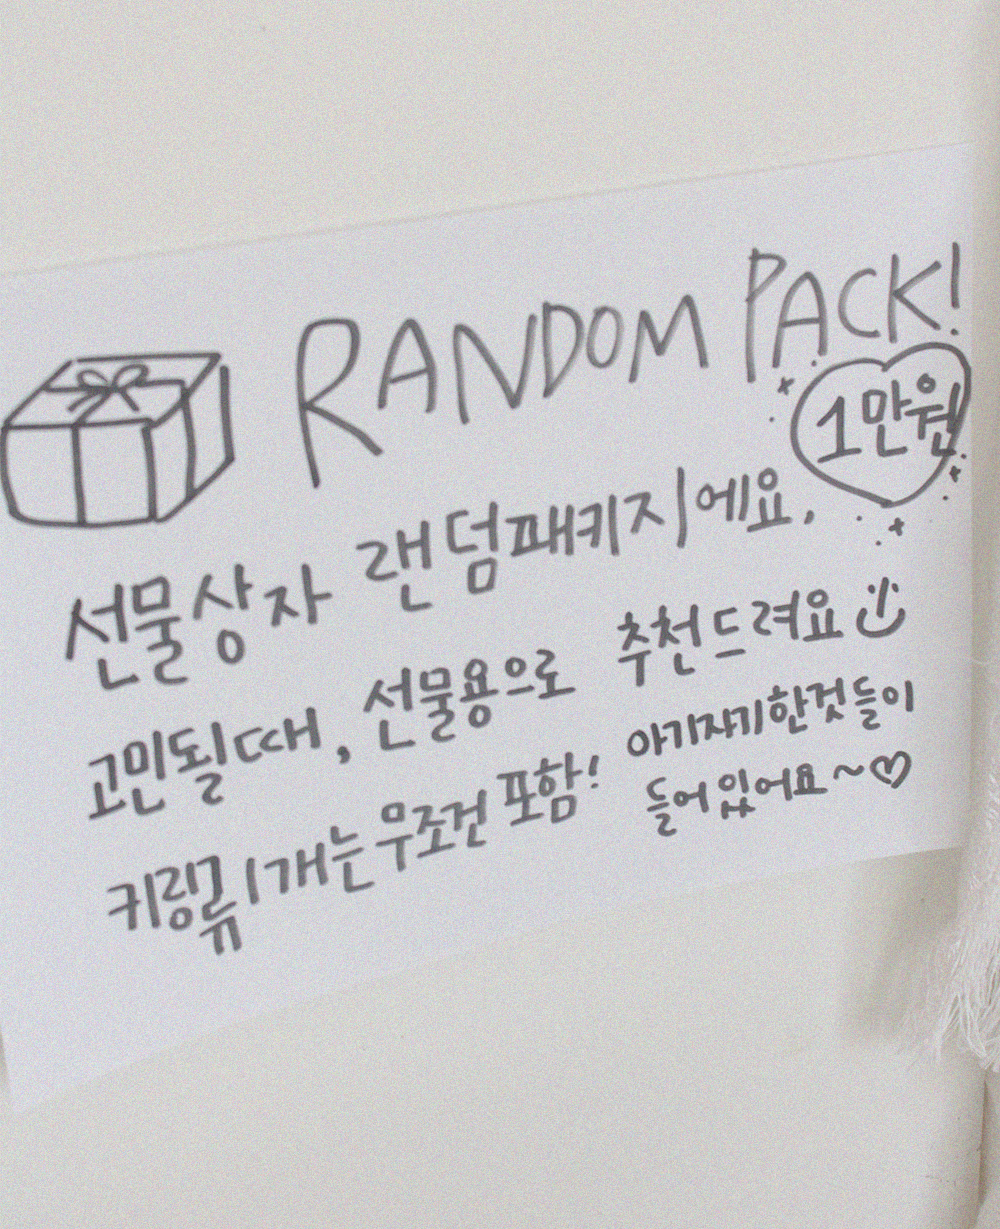 RANDOM PACK!
1만원
선물상자 랜덤패키지에요.
고민될때, 선물용으로 추천드려요
키링류 1개는 무조건 포함! 아기자기한것들이
들어있어요~